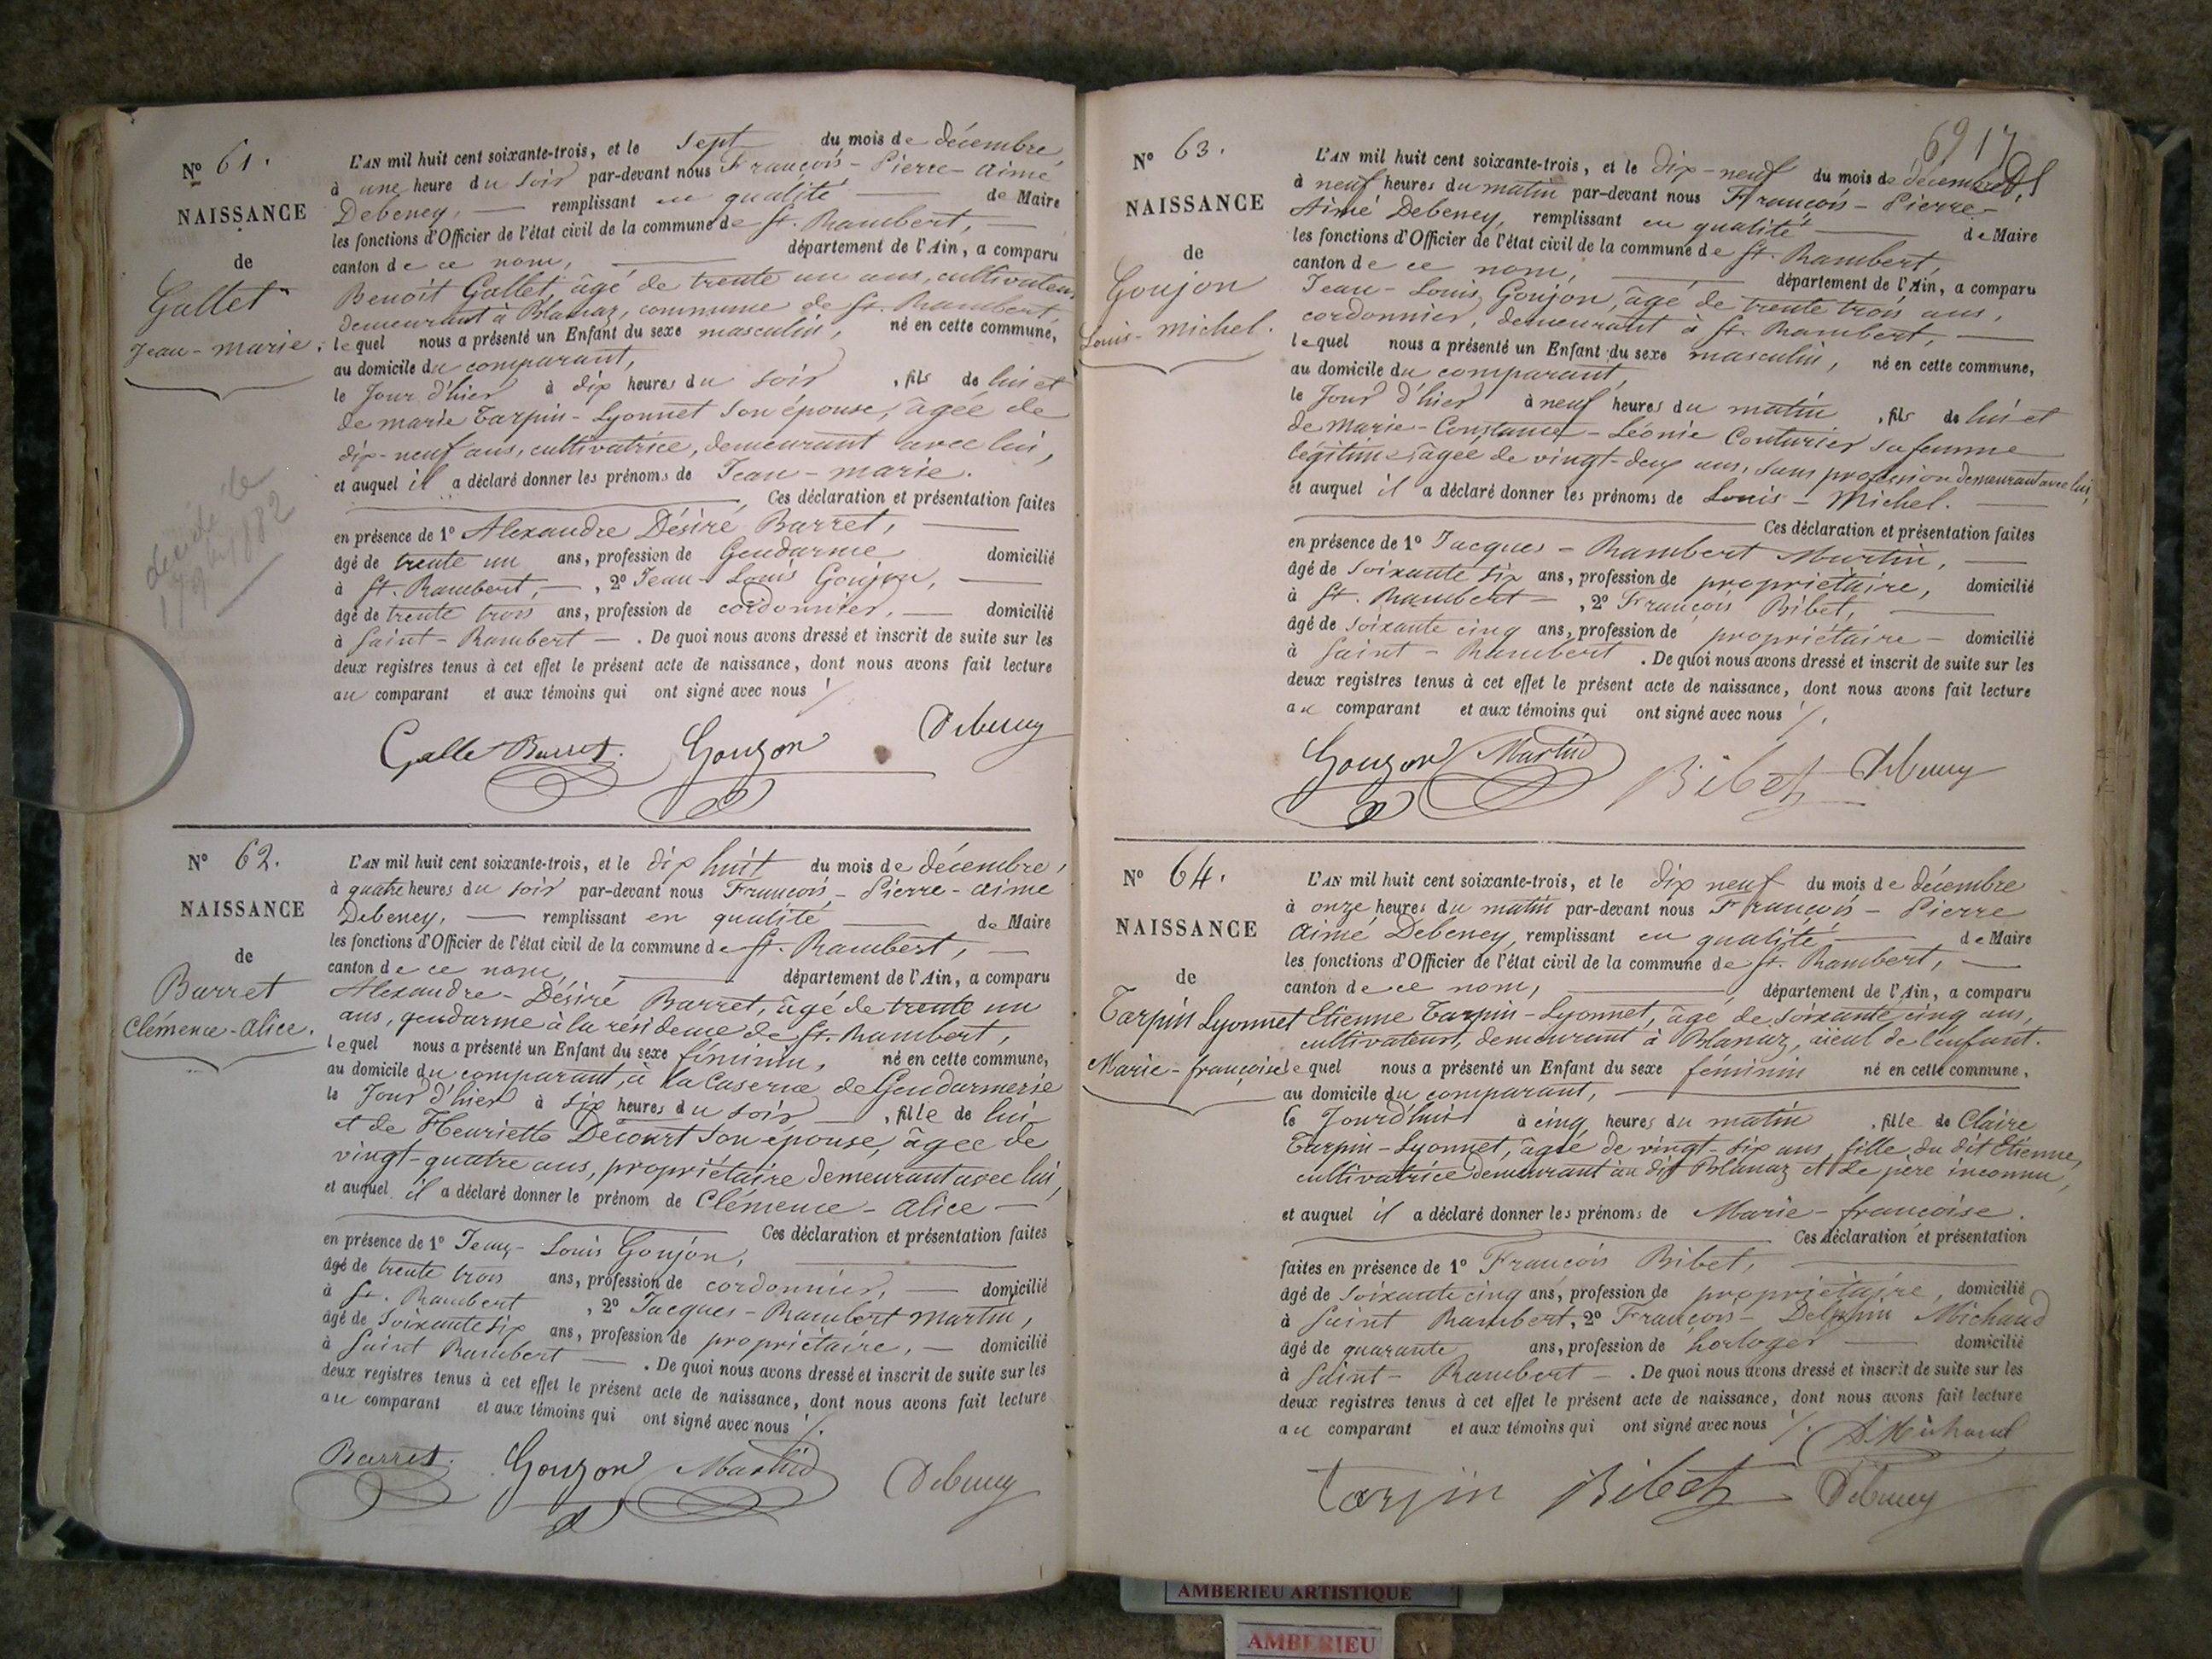 Nº 61.
NAISSANCE
de
Gallet
Jean-Marie.
décédé le
1882
L'AN mil huit cent soixante-trois, et le sept du mois de décembre,
à une heure du soir par-devant nous François-Pierre-Aimé
Debeney, remplissant en qualité de Maire
les fonctions d'Officier de l'état civil de la commune de St. Rambert,
canton de ce nom, département de l'Ain, a comparu
Benoit Gallet, âgé de trente un ans, cultivateur
demeurant à Blanaz, commune de St. Rambert
lequel nous a présenté un Enfant du sexe masculin, né en cette commune,
au domicile du comparant,
le Jour d'hier à dix heures du soir, fils de lui et
de marie Tarpin-Lyonnet son épouse, âgée de
dix-neuf ans, cultivatrice, demeurant avec lui,
et auquel il a déclaré donner les prénoms de Jean-marie.
Ces déclaration et présentation faites
en présence de 1º Alexandre Désiré Barret,
âgé de trente un ans, profession de Gendarme domicilié
à St. Rambert, 2º Jean-Louis Goujon,
âgé de trente trois ans, profession de cordonnier, domicilié
à Saint-Rambert. De quoi nous avons dressé et inscrit de suite sur les
deux registres tenus à cet effet le présent acte de naissance, dont nous avons fait lecture
au comparant et aux témoins qui ont signé avec nous ./.
Galle Barret. Goujon Debeney
Nº 62.
NAISSANCE
de
Barret
Clémence-Alice.
L'AN mil huit cent soixante-trois, et le dix huit du mois de décembre,
à quatre heures du soir par-devant nous François-Pierre-Aimé
Debeney, remplissant en qualité de Maire
les fonctions d'Officier de l'état civil de la commune de St. Rambert,
canton de ce nom, département de l'Ain, a comparu
Alexandre-Désiré Barret, âgé de trente un
ans, gendarme à la résidence de St. Rambert,
lequel nous a présenté un Enfant du sexe féminin, né en cette commune,
au domicile du comparant, à la Caserne de Gendarmerie
le Jour d'hier à six heures du soir, fille de lui
et de Henriette Décourt son épouse, âgée de
vingt-quatre ans, propriétaire demeurant avec lui,
et auquel il a déclaré donner le prénom de Clémence-Alice
Ces déclaration et présentation faites
en présence de 1º Jean-Louis Goujon,
âgé de trente trois ans, profession de cordonnier, domicilié
à St. Rambert, 2º Jacques-Rambert Martin,
âgé de soixante six ans, profession de propriétaire, domicilié
à Saint Rambert. De quoi nous avons dressé et inscrit de suite sur les
deux registres tenus à cet effet le présent acte de naissance, dont nous avons fait lecture
au comparant et aux témoins qui ont signé avec nous ./.
Barret. Goujon Martin Debeney
69 17
Nº 63.
NAISSANCE
de
Goujon
Louis-Michel.
L'AN mil huit cent soixante-trois, et le dix-neuf du mois de décembre,
à neuf heures du matin par-devant nous François-Pierre-
Aimé Debeney, remplissant en qualité de Maire
les fonctions d'Officier de l'état civil de la commune de St. Rambert,
canton de ce nom, département de l'Ain, a comparu
Jean-Louis Goujon, âgé de trente trois ans,
cordonnier, demeurant à St. Rambert,
lequel nous a présenté un Enfant du sexe masculin, né en cette commune,
au domicile du comparant,
le Jour d'hier à neuf heures du matin, fils de lui et
de Marie-Constance-Léonie Couturier sa femme
légitime, âgée de vingt-deux ans, sans profession demeurant avec lui,
et auquel il a déclaré donner les prénoms de Louis-Michel.
Ces déclaration et présentation faites
en présence de 1º Jacques-Rambert Martin,
âgé de soixante six ans, profession de propriétaire, domicilié
à St. Rambert, 2º François Bibet,
âgé de soixante cinq ans, profession de propriétaire domicilié
à Saint-Rambert. De quoi nous avons dressé et inscrit de suite sur les
deux registres tenus à cet effet le présent acte de naissance, dont nous avons fait lecture
au comparant et aux témoins qui ont signé avec nous ./.
Goujon Martin Bibet Debeney
Nº 64.
NAISSANCE
de
Tarpin Lyonnet
Marie-françoise
L'AN mil huit cent soixante-trois, et le dix neuf du mois de décembre
à onze heures du matin par-devant nous François-Pierre
Aimé Debeney, remplissant en qualité de Maire
les fonctions d'Officier de l'état civil de la commune de St. Rambert,
canton de ce nom, département de l'Ain, a comparu
Etienne Tarpin-Lyonnet, âgé de soixante cinq ans,
cultivateur, demeurant à Blanaz, aïeul de l'enfant.
lequel nous a présenté un Enfant du sexe féminin né en cette commune,
au domicile du comparant,
le Jourd'hui à cinq heures du matin, fille de Claire
Tarpin-Lyonnet, âgée de vingt-six ans, fille du dit Etienne,
cultivatrice demeurant au dit Blanaz et de père inconnu,
et auquel il a déclaré donner les prénoms de Marie-françoise.
Ces déclaration et présentation
faites en présence de 1º François Bibet,
âgé de soixante cinq ans, profession de propriétaire, domicilié
à Saint Rambert, 2º François-Delphin Michaud
âgé de quarante ans, profession de horloger domicilié
à Saint-Rambert. De quoi nous avons dressé et inscrit de suite sur les
deux registres tenus à cet effet le présent acte de naissance, dont nous avons fait lecture
au comparant et aux témoins qui ont signé avec nous ./.
D. Michaud
Tarpin Bibet Debeney
AMBERIEU ARTISTIQUE
AMBERIEU